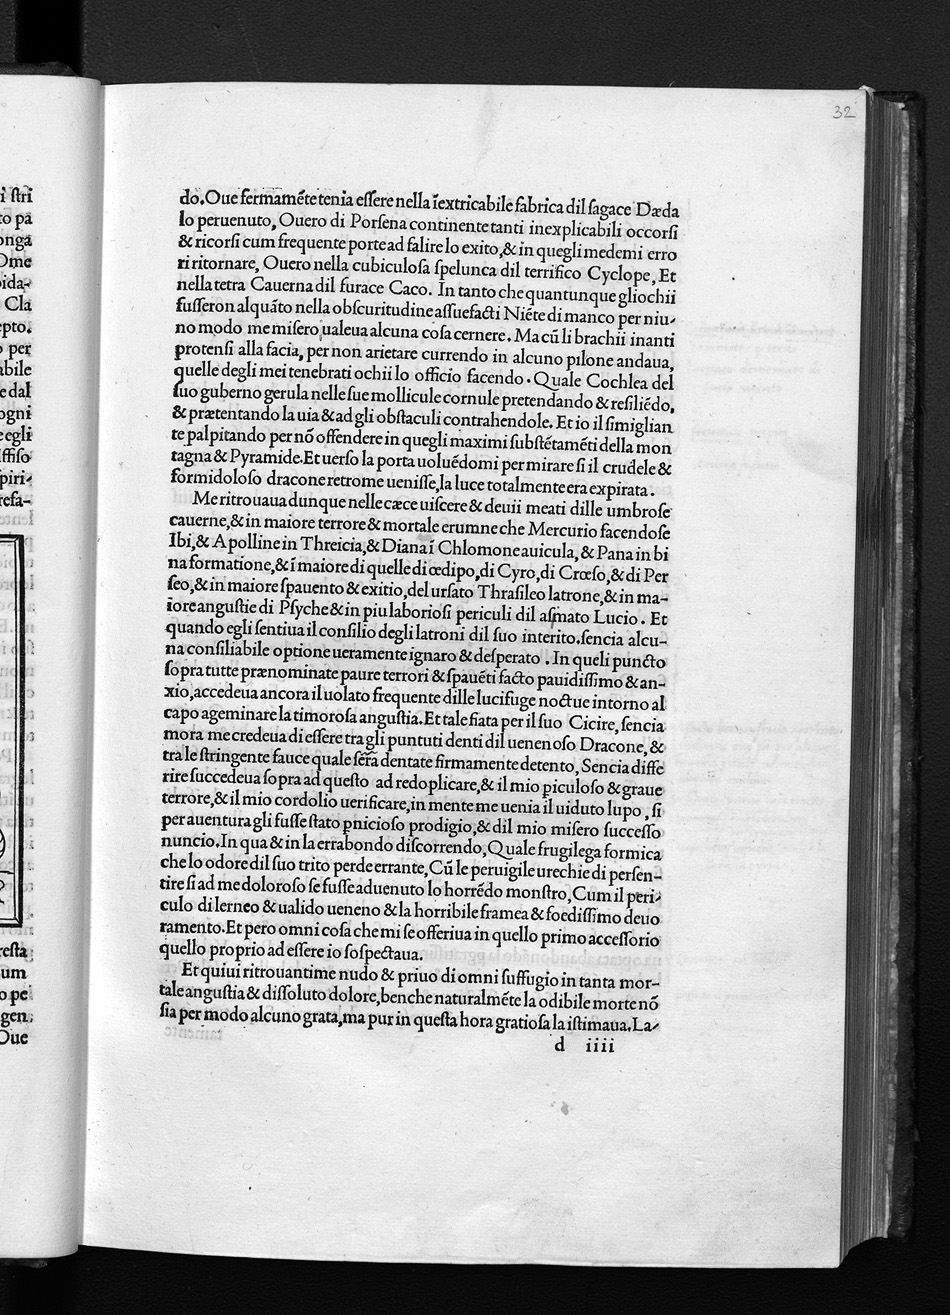 32
do.Oue fermamẽte tenia eſſere nella ĩextricabile fabrica dil ſagace Dæda
lo peruenuto, Ouero di Porſena continente tanti inexplicabili occorſi
& ricorſi cum frequente porte ad ſalire lo exito,& in quegli medemi erro
ri ritornare, Ouero nella cubiculoſa ſpelunca dil terrifico Cyclope, Et
nella tetra Cauerna dil furace Caco. In tanto che quantunque gliochii
fuſſeron alquãto nella obſcuritudine aſſuefacti Niẽte di manco per niu-
no modo me miſero ualeua alcuna coſa cernere. Ma cũ li brachii inanti
protenſi alla facia, per non arietare currendo in alcuno pilone andaua,
quelle degli mei tenebrati ochii lo officio facendo. Quale Cochlea del
ſuo guberno gerula nelle ſue mollicule cornule pretendando & reſiliẽdo,
& prætentando la uia & ad gli obſtaculi contrahendole. Et io il ſimiglian
te palpitando per nõ offendere in quegli maximi ſubſtẽtamẽti della mon
tagna & Pyramide.Et uerſo la porta uoluẽdomi per mirare ſi il crudele &
formidoloſo dracone retro me ueniſſe,la luce totalmente era expirata.
Me ritrouaua dunque nelle cæce uiſcere & deuii meati dille umbroſe
cauerne,& in maiore terrore & mortale erumne che Mercurio facendoſe
Ibi,& Apolline in Threicia,& Diana ĩ Chlomone auicula, & Pana in bi
na formatione,& ĩ maiore di quelle di œdipo,di Cyro,di Crœſo,& di Per
ſeo,& in maiore ſpauento & exitio,del urſato Thraſileo latrone,& in ma-
iore anguſtie di Pſyche & in piu laborioſi periculi dil aſinato Lucio. Et
quando egli ſentiua il conſilio degli latroni dil ſuo interito.ſencia alcu-
na conſiliabile optione ueramente ignaro & deſperato. In queli puncto
ſopra tutte prænominate paure terrori & ſpauẽti facto pauidiſſimo & an-
xio,accedeua ancora il uolato frequente dille lucifuge noctue intorno al
capo ageminare la timoroſa anguſtia.Et tale fiata per il ſuo Cicire, ſencia
mora me credeua di eſſere tra gli puntuti denti dil uenenoſo Dracone, &
tra le ſtringente fauce quale ſerra dentate firmamente detento, Sencia diffe
rire ſuccedeua ſopra ad queſto ad redoplicare,& il mio piculoſo & graue
terrore,& il mio cordolio uerificare,in mente me uenia il uiduto lupo, ſi
per auentura gli fuſſe ſtato ꝑnicioſo prodigio,& dil mio miſero ſucceſſo
nuncio.In qua & in la errabondo diſcorrendo,Quale frugilega formica
che lo odore dil ſuo trito perde errante,Cũ le peruigile urechie di perſen-
tire ſi ad me doloroſo ſe fuſſe aduenuto lo horrẽdo monſtro,Cum il peri-
culo di lerneo & ualido ueneno & la horribile framea & foediſſimo deuo
ramento.Et pero omni coſa che mi ſe offeriua in quello primo acceſſorio
quello proprio ad eſſere io ſoſpectaua.
Et quiui ritrouantime nudo & priuo di omni ſuffugio in tanta mor-
tale anguſtia & diſſoluto dolore,benche naturalmẽte la odibile morte nõ
ſia per modo alcuno grata,ma pur in queſta hora gratioſa la iſtimaua.La-
d iiii